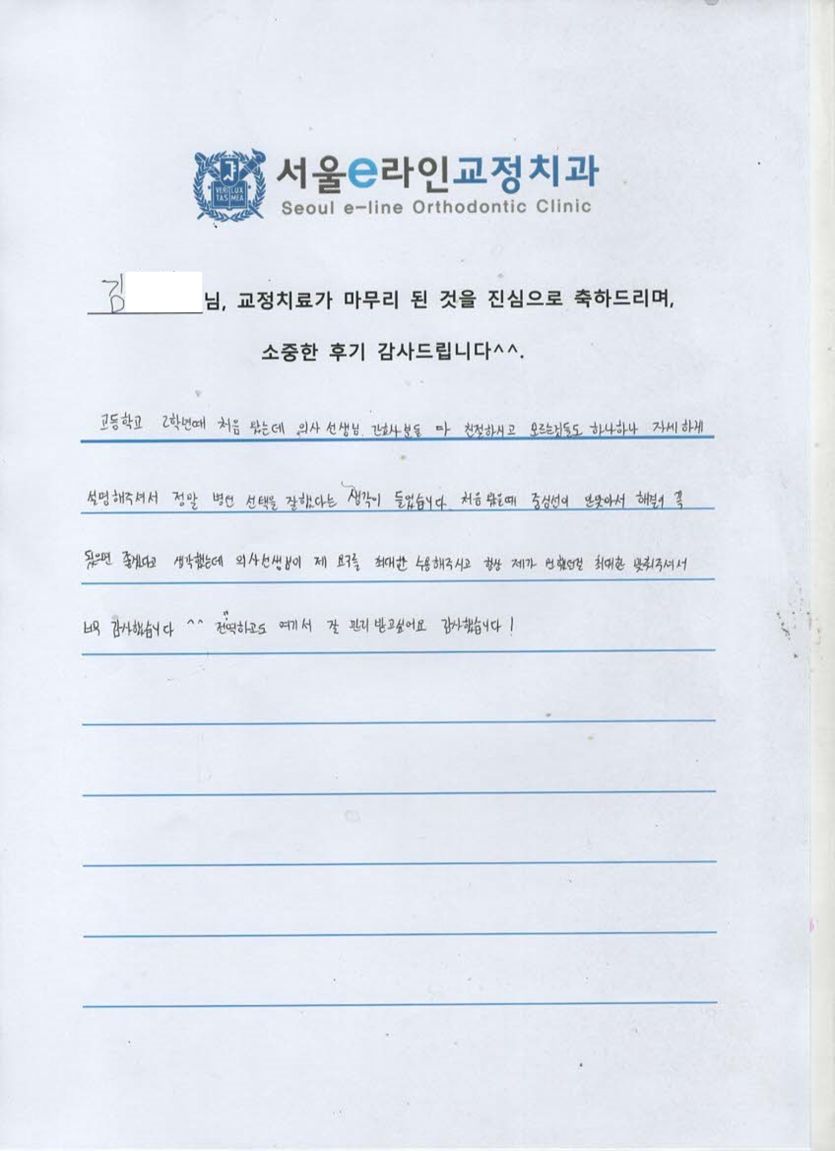 VERI LUX TAS MEA
서울e라인교정치과
Seoul e-line Orthodontic Clinic
김 님, 교정치료가 마무리 된 것을 진심으로 축하드리며,
소중한 후기 감사드립니다^^.
고등학교 2학년때 처음 왔는데 의사 선생님, 간호사분들 다 친절하시고 모르는것들도 하나하나 자세하게
설명해주셔서 정말 병원 선택을 잘했다는 생각이 들었습니다. 처음 왔을때 중심선이 안맞아서 해결이 꼭
됐으면 좋겠다고 생각했는데 의사선생님이 제 요구를 최대한 수용해주시고 항상 제가 원했던걸 최대한 맞춰주셔서
너무 감사했습니다 ^^ 하고도 여기서 잘 관리 받고싶어요 감사했습니다!